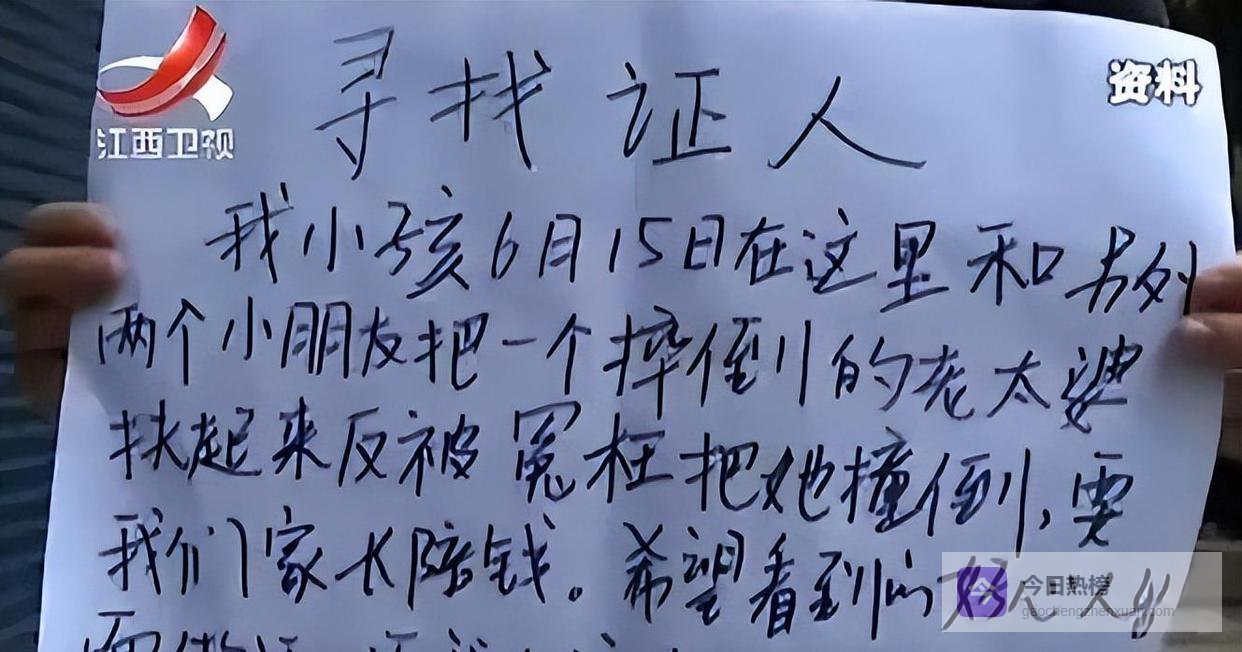 江西卫视
资料
寻找证人
我小孩6月15日在这里和另外
两个小朋友把一个摔倒的老太婆
扶起来反被冤枉把她撞倒,要
我们家长陪钱。希望看到的好心人
今日热榜
gaochengzhenxuan.com